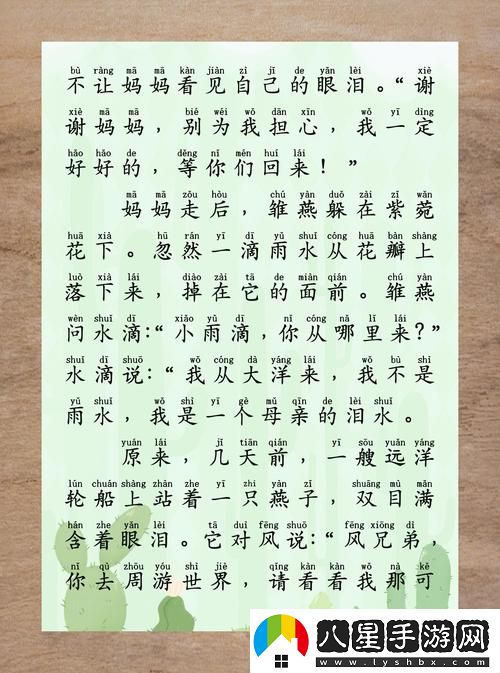 bù ràng mā mā kàn jiàn zì jǐ de yǎn lèi xiè
不让妈妈看见自己的眼泪。“谢
xiè mā mā bié wèi wǒ dān xīn wǒ yī dìng
谢妈妈，别为我担心，我一定
hǎo hǎo de děng nǐ men huí lái
好好的，等你们回来！”
mā mā zǒu hòu chú yàn duǒ zài zǐ wǎn
妈妈走后，雏燕躲在紫菀
huā xià hū rán yī dī yǔ shuǐ cóng huā bàn shàng
花下。忽然一滴雨水从花瓣上
luò xià lái diào zài tā de miàn qián chú yàn
落下来，掉在它的面前。雏燕
wèn shuǐ dī xiǎo yǔ dī nǐ cóng nǎ lǐ lái
问水滴：“小雨滴，你从哪里来？”
shuǐ dī shuō wǒ cóng dà yáng lái wǒ bù shì
水滴说：“我从大洋来，我不是
yǔ shuǐ wǒ shì yī gè mǔ qīn de lèi shuǐ
雨水，我是一个母亲的泪水。
yuán lái jǐ tiān qián yī sōu yuǎn yáng
原来，几天前，一艘远洋
lún chuán shàng zhàn zhe yī zhī yàn zi shuāng mù mǎn
轮船上站着一只燕子，双目满
hán zhe yǎn lèi tā duì fēng shuō fēng xiōng dì
含着眼泪。它对风说：“风兄弟，
nǐ qù zhōu yóu shì jiè qǐng kàn kàn wǒ nà kě
你去周游世界，请看看我那可
八星手游网
www.lyshbx.com